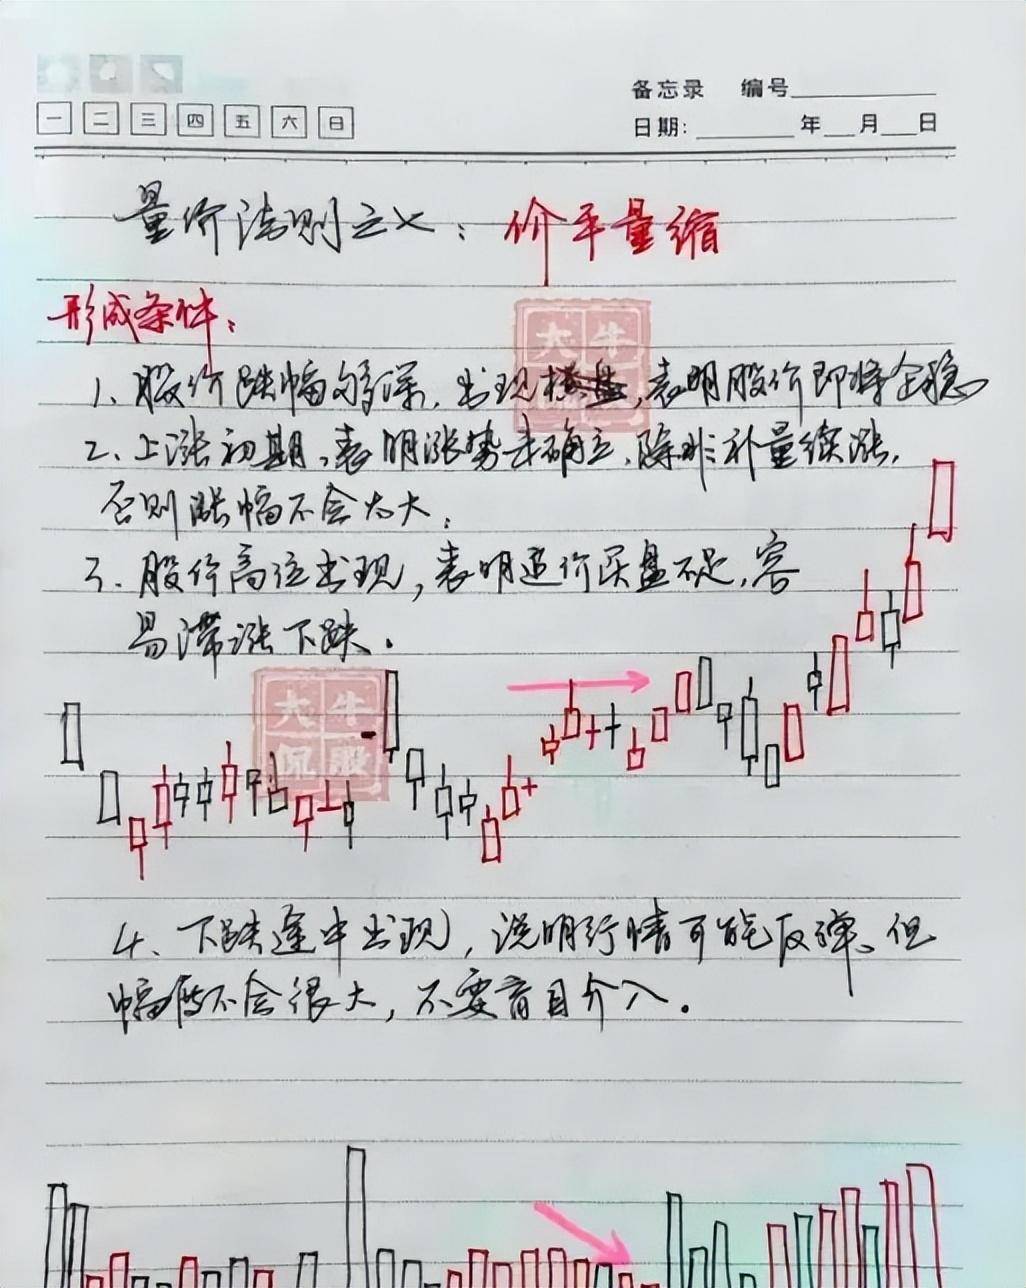 备忘录 编号
一 二 三 四 五 六 日
日期: 年 月 日
量价法则之七:价平量缩
形成条件:
1、股价跌幅够深,出现横盘,表明股价即将企稳
2、上涨初期,表明涨势未确立,除非补量续涨,
否则涨幅不会太大,
大牛
3、股价高位出现,表明追价买盘不足,容
易滞涨下跌.
大牛
侃股
4、下跌途中出现,说明行情可能反弹、但
幅度不会很大,不要盲目介入.